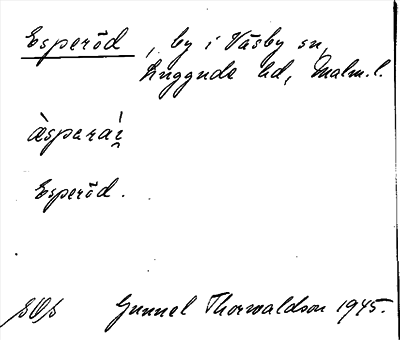 Esperöd, by i Väsby sn,
Luggude hd, Malm. l.
àsparài̯
Esperöd.
Gunnel Thorwaldson 1945.